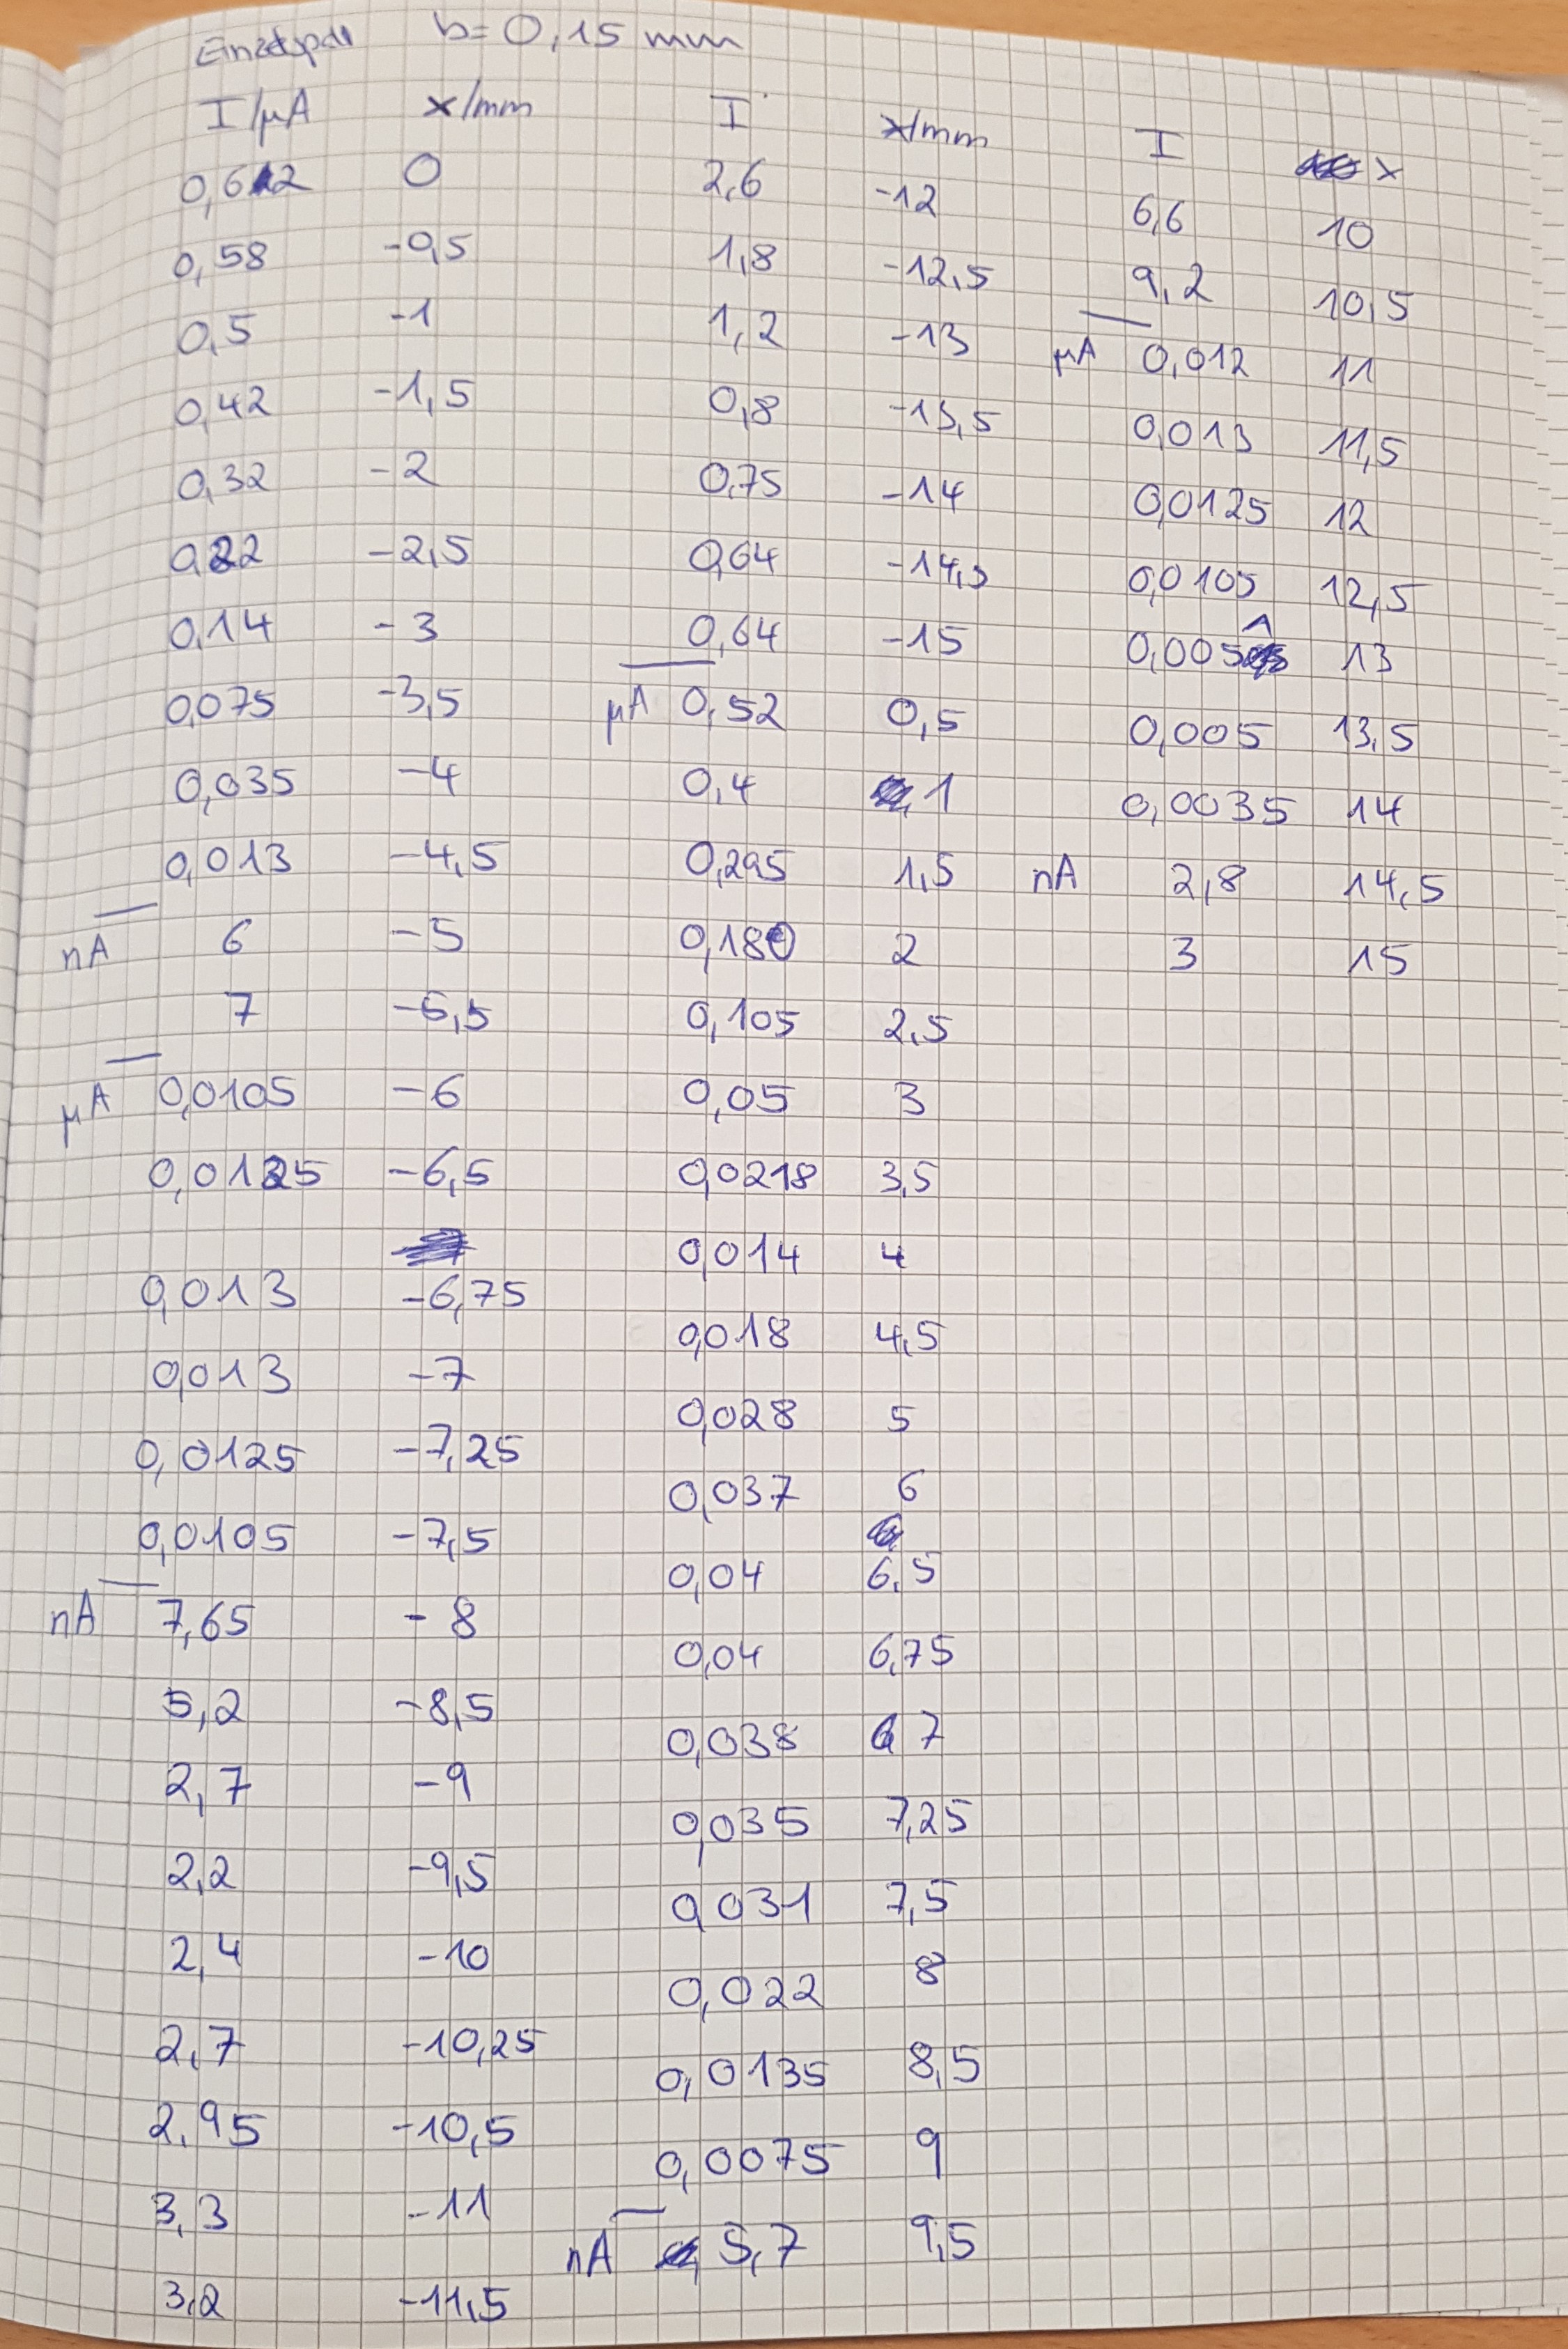 Einzelspalt b=0,15 mm
I/µA x/mm
0,612 0
0,58 -0,5
0,5 -1
0,42 -1,5
0,32 -2
0,22 -2,5
0,14 -3
0,075 -3,5
0,035 -4
0,013 -4,5
nA 6 -5
7 -5,5
µA 0,0105 -6
0,0125 -6,5
0,013 -6,75
0,013 -7
0,0125 -7,25
0,0105 -7,5
nA 7,65 -8
5,2 -8,5
2,7 -9
2,2 -9,5
2,4 -10
2,7 -10,25
2,95 -10,5
3,3 -11
3,2 -11,5
I x/mm
2,6 -12
1,8 -12,5
1,2 -13
0,8 -13,5
0,75 -14
0,64 -14,5
0,64 -15
µA 0,52 0,5
0,4 1
0,295 1,5
0,180 2
0,105 2,5
0,05 3
0,0218 3,5
0,014 4
0,018 4,5
0,028 5
0,037 6
0,04 6,5
0,04 6,75
0,038 7
0,035 7,25
0,031 7,5
0,022 8
0,0135 8,5
0,0075 9
nA 5,7 9,5
I x
6,6 10
9,2 10,5
µA 0,012 11
0,013 11,5
0,0125 12
0,0105 12,5
0,005 13
0,005 13,5
0,0035 14
nA 2,8 14,5
3 15